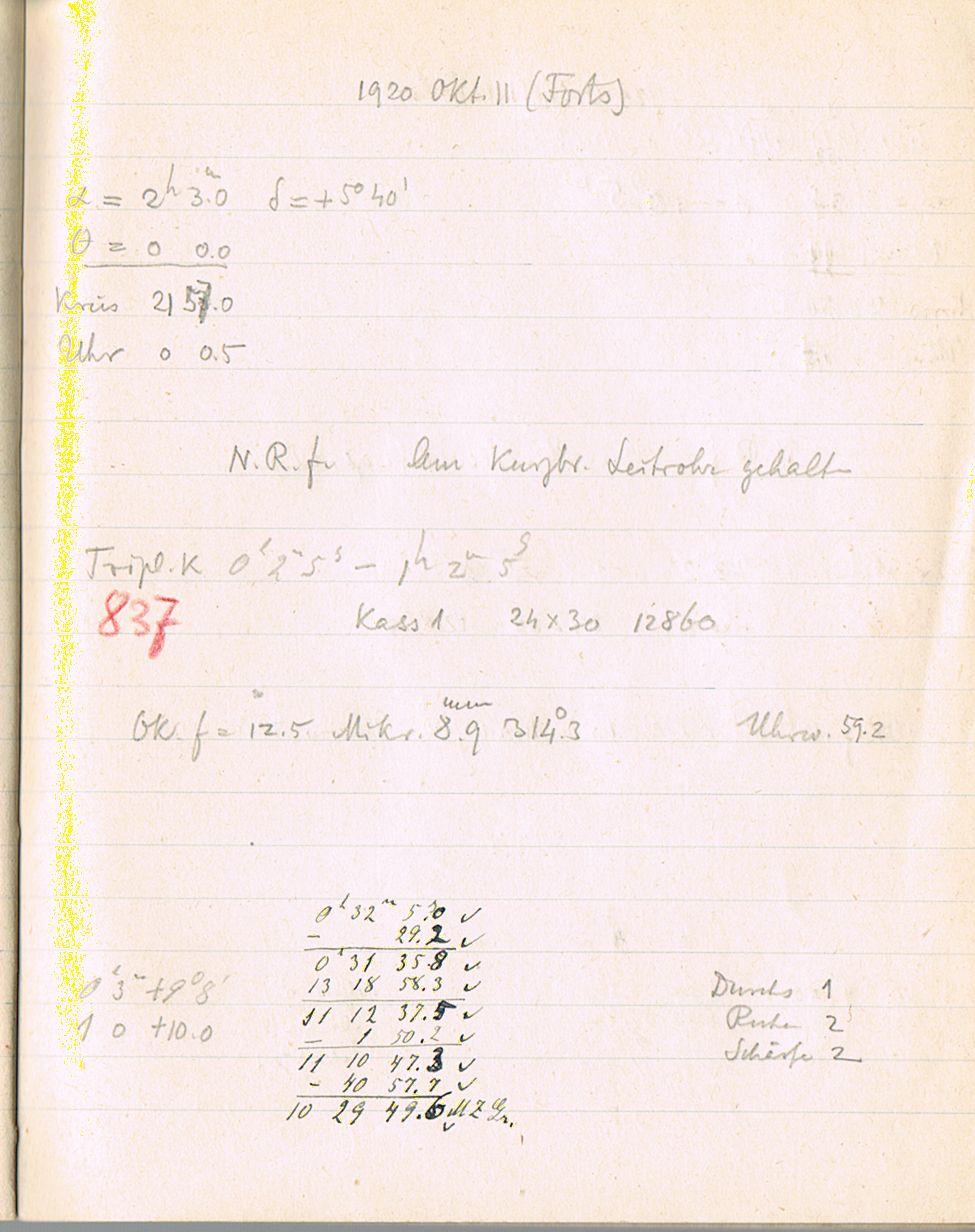 1920 Okt. 11 (Forts)
α = 2h 3.0m δ = +5° 40'
θ = 0 0.0
Kreis 21 57.0
Uhr 0 0.5
N.R.f. Am Kurzbr. Leitrohr gehalten
Tripl. K 0h 2m 5s – 1h 2m 5s
837
Kass 1 24 × 30 12860
Ok. f = 12.5 Mikr. 8.9mm 314°.3 Uhrw. 59.2
0h 32m 5.0 ✓
– 29.2 ✓
0h 31 35.8 ✓
13 18 58.3 ✓
11 12 37.5 ✓
– 1 50.2 ✓
11 10 47.3 ✓
– 40 57.7 ✓
10 29 49.6 MZ Gr. ✓
0h 3m +9° 8'
1 0 +10.0
Durchs 1
Ruhe 2
Schärfe 2